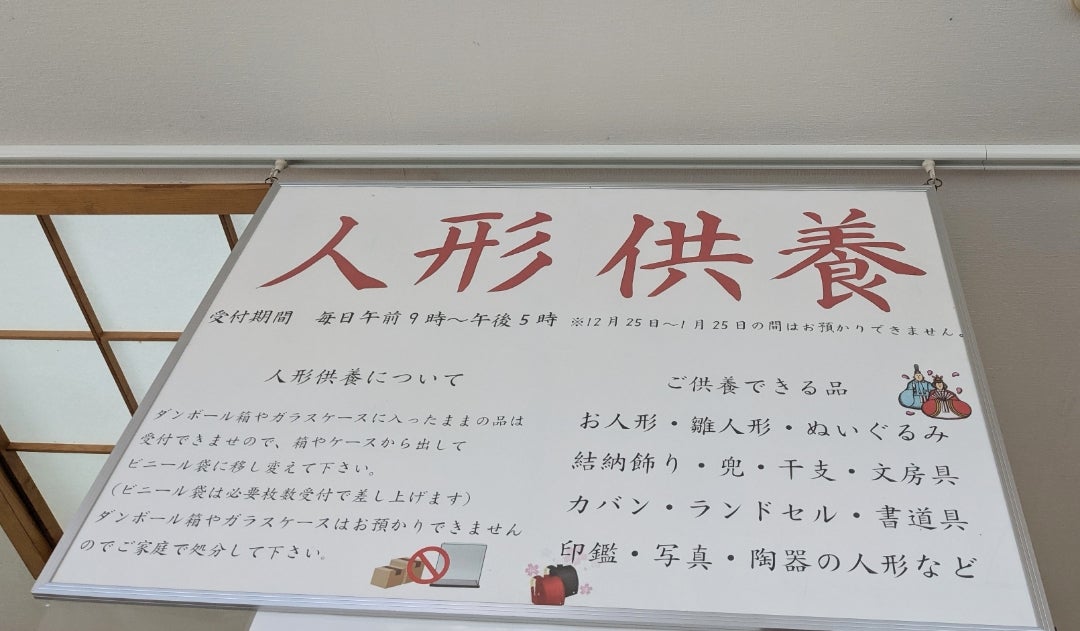 人形供養
受付期間 毎日午前9時～午後5時 ※12月25日～1月25日の間はお預かりできません。
人形供養について
ダンボール箱やガラスケースに入ったままの品は
受付できませので、箱やケースから出して
ビニール袋に移し変えて下さい。
（ビニール袋は必要枚数受付で差し上げます）
ダンボール箱やガラスケースはお預かりできません
のでご家庭で処分して下さい。
ご供養できる品
お人形・雛人形・ぬいぐるみ
結納飾り・兜・干支・文房具
カバン・ランドセル・書道具
印鑑・写真・陶器の人形など